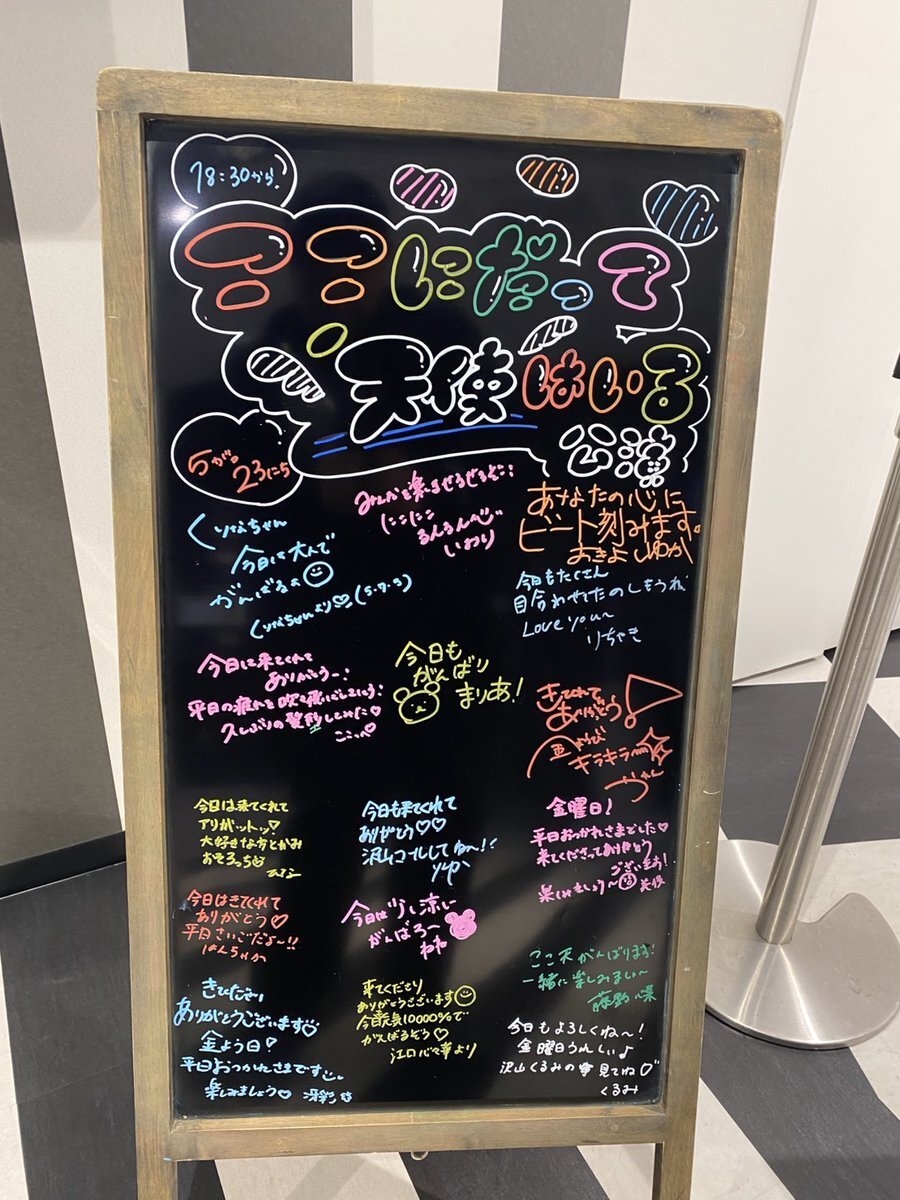 18:30から
ここにだって
天使はいる
公演
5がつ
23にち
みんなを楽しませるぜるぞ!!
にこにこ
るんるん
いおり
あなたの心に
ビート刻みます。
おきよ しゆか
くりなちゃん
がんばるよ
くりなちゃんより
今日もたくさん
目合わせてたのしもうね
Love you〜
りちゃき
今日は来てくれて
ありがとう
平日の疲れを吹き飛ばし
久しぶりの髪型してみた♡
ここっぺ
今日も
がんばり
まりあ!
きてくれて
ありがとう!
キラキラ
今日は来てくれて
アリガットゥ
大好きな方とかみ
おそろっち
今日も来てくれて
ありがとう♡♡
沢山コールしてね〜!!
りゆか
金曜日!
平日おつかれさまでした♡
来てくださってありがとう
ございます!
楽しみましょう〜
美優
今日はきてくれて
ありがとう♡
平日さいごだよ〜!!
はんちゃか
今日は少し涼しい
がんばろ〜
ここ天がんばります!
一緒に楽しみましょ〜
藤野心葉
きてくださり
ありがとうございます
金よう日!
平日おつかれさまです
楽しみましょう♡ 冴彩
来てくださり
ありがとうございます
今日も元気10000%で
がんばるぞう♡
江口心々華より
今日もよろしくね〜!
金曜日うれしい♪
沢山くるみの事見てね♡
くるみ